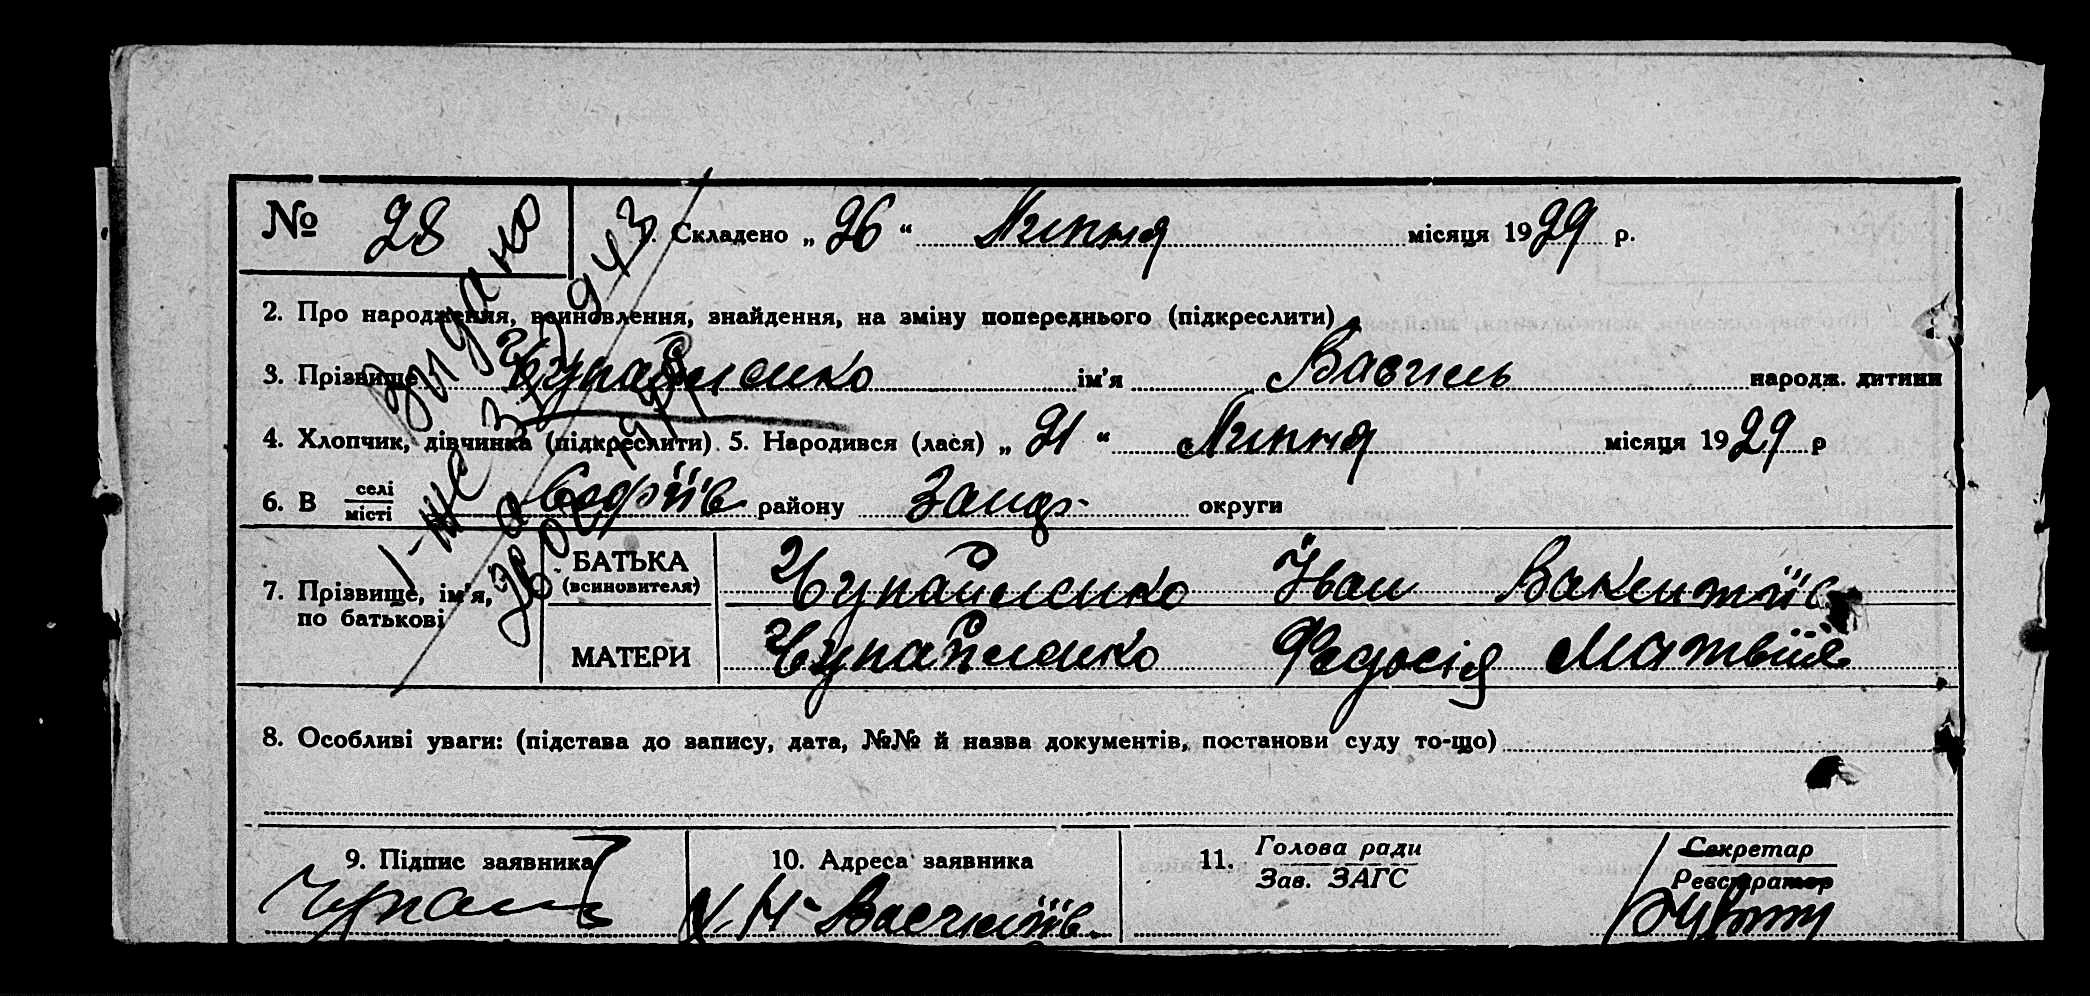 № 28 1. Складено „ 26 “ Липня місяця 1929 р.
2. Про народження, всиновлення, знайдення, на зміну попереднього (підкреслити)
3. Прізвище Чупайленко ім’я Василь народж. дитини
4. Хлопчик, дівчинка (підкреслити). 5. Народився (лася) „ 21 “ Липня місяця 1929 р
6. В селі місті Софіїв району Запор. округи
7. Прізвище, ім’я, по батькові
БАТЬКА (всиновителя) Чупайленко Іван Вакентіїв
МАТЕРИ Чупайленко Федосія Матвіїв
8. Особливі уваги: (підстава до запису, дата, №№ й назва документів, постанови суду то-що)
9. Підпис заявника 10. Адреса заявника 11. Голова ради Зав. ЗАГС Секретар Реєстратор
Чупай Н-Василїв.
видано